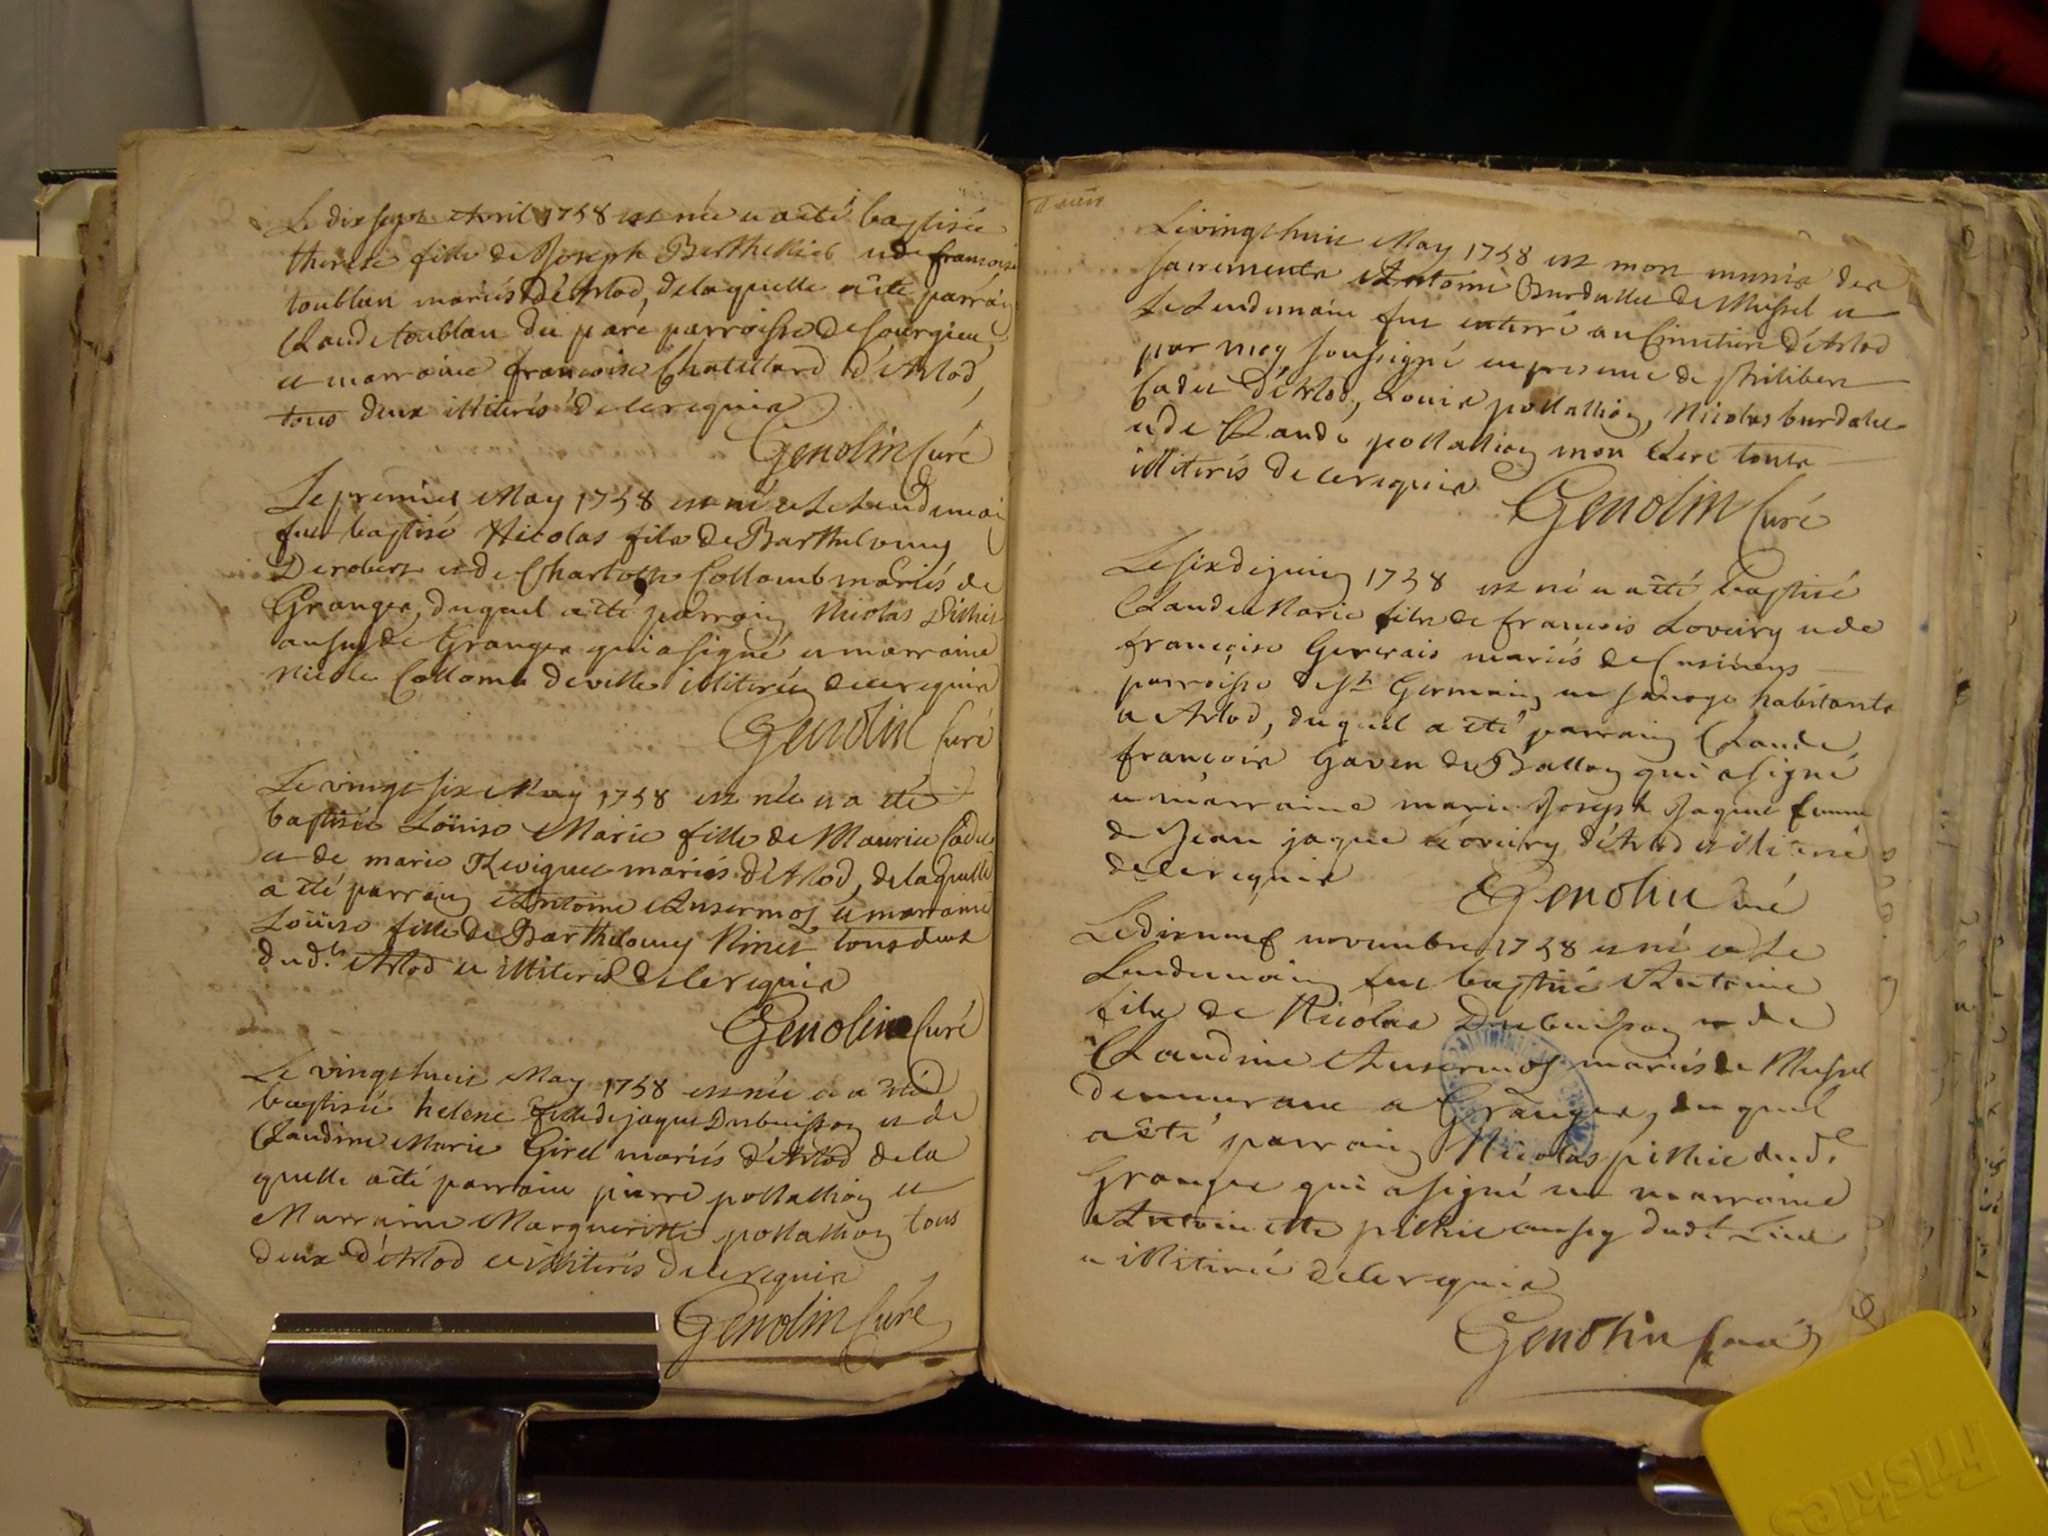 Le dix sept Avril 1758 est née et a été baptisée
therese fille de Joseph et de françoise
toublan mariés d'Arlod, de laquelle a été parrain
Claude toublan du parc parroisse de
et marraine françoise Chatillard d'Arlod,
tous deux illiterés de ce requis
Genolin Curé
Le premier May 1758 est né et Le Lendemain
fut baptisé Nicolas fils de Barthelemy
Derobert et de Charlotte Collomb mariés de
Granges, duquel a été parrain Nicolas
aussy de Granges qui a signé et marraine
Nicole Collomb de ville illiterée de ce requise
Genolin Curé
Le vingt six May 1758 est née et a été
baptisée Loüise Marie fille de Maurice Cadet
et de marie mariés d'Arlod, de laquelle
a été parrain Antoine Ansermoz et marraine
Loüise fille de Barthelemy tous deux
dud.t Arlod et illiterés de ce requis
Genolin Curé
Le vingt huit May 1758 est née et a été
baptisée helene fille de jaque Dubuisson et de
Claudine Marie Girel mariés d'Arlod de la
quelle a été parrain pierre pollallion et
Marraine Marguerite pollallion tous
deux d'Arlod et illiterés de ce requis
Genolin Curé
Le vingt huit May 1758 est mort munis des
sacrements Antoine Burdallet de Mussel et
Le Lendemain fut enterré au Cimetiere d'Arlod
par moy soussigné en presence de philibert
Cadet d'Arlod, Louis pollallion, Nicolas burdalet
et de Claude pollallion mon Clerc touts
illiterés de ce requis
Genolin Curé
Le six de juin 1758 est né et a été baptisé
Claude Marie fils de francois Loveiry et de
françoise Gervais mariés de Cusinens
parroisse de St Germain en habitants
a Arlod, duquel a été parrain Claude
françois Gaven de Ballon qui a signé
et marraine marie Joseph Jaquet femme
de Jean jaque Loveiry d'Arlod illiterée
de ce requise
Genolin curé
Le dix neuf novembre 1758 est né et Le
Lendemain fut baptisé Antoine
fils de Nicolas Dubuisson et de
Claudine Ansermoz mariés de Mussel
demeurant a Granges, du quel
a été parrain Nicolas pithie dud.t
Granges qui a signé et marraine
Antoinette pithie aussy dud.t Lieu
et illiterée de ce requise
Genolin Curé
Friskies